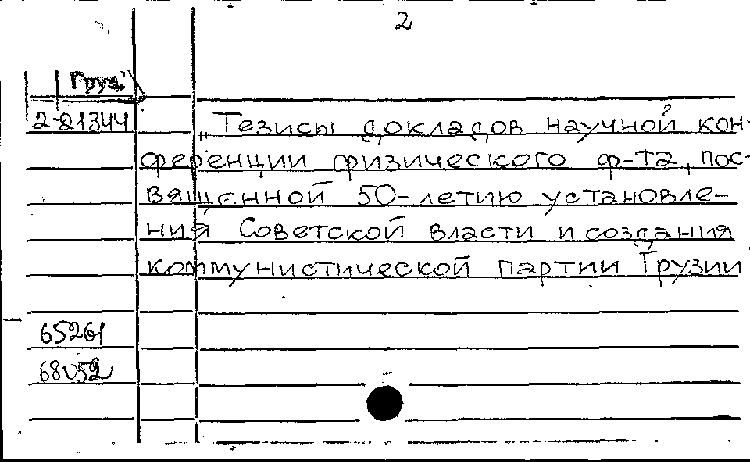 2
Груз.
2-21344
„Тезисы докладов научной кон-
ференции физического ф-та, пос-
вященной 50-летию установле-
ния Советской власти и создания
коммунистической партии Грузии
65261
68052